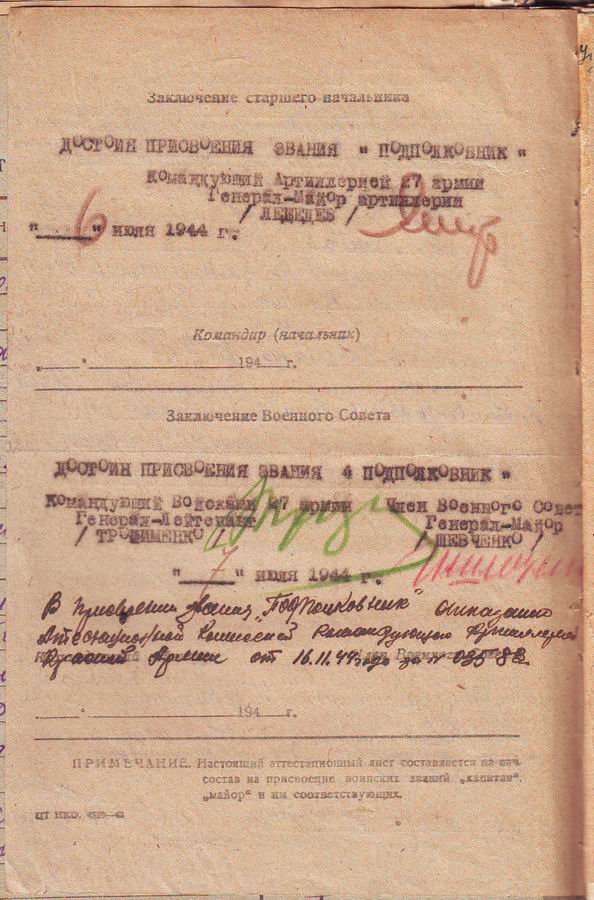 Заключение старшего начальника
ДОСТОИН ПРИСВОЕНИЯ ЗВАНИЯ " ПОДПОЛКОВНИК "
КОМАНДУЮЩИЙ Артиллерией 27 армии
Генерал-Майор артиллерии
/ ЛЕБЕДЕВ /
" 6 " июля 1944 г.
Командир (начальник)
" " 194 г.
Заключение Военного Совета
ДОСТОИН ПРИСВОЕНИЯ ЗВАНИЯ " ПОДПОЛКОВНИК "
Командующий Войсками 27 армии Член Военного Совет
Генерал-Лейтенант Генерал-Майор
/ ТРОФИМЕНКО / / ШЕВЧЕНКО /
" 7 " июля 1944 г.
В присвоении звания "Подполковник" отказано
Аттестационной Комиссией Командующего Артиллерией
Красной Армии от 16.11.44 года за №
" " 194 г.
ПРИМЕЧАНИЕ. Настоящий аттестационный лист составляется на нач.
состав на присвоение воинских званий „капитан",
„майор" и им соответствующих.
ЦТ НКО.